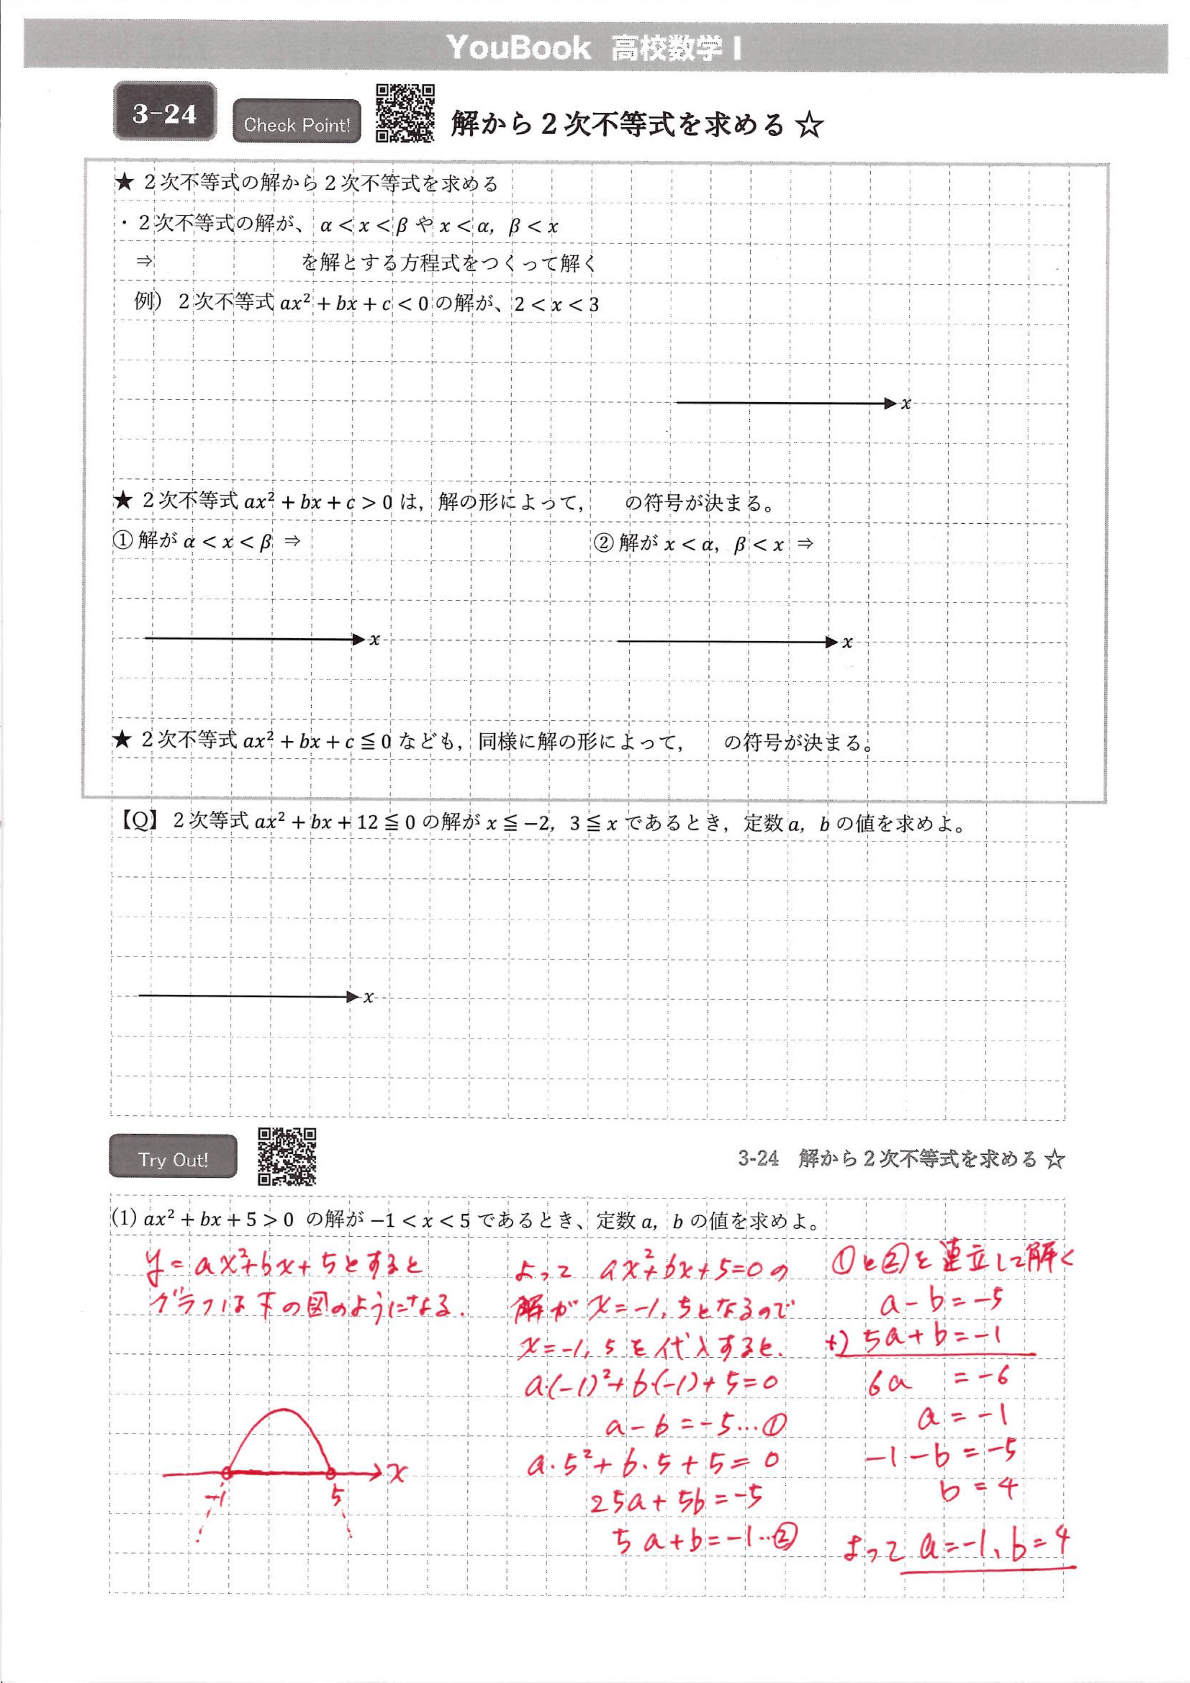 YouBook 高校数学 I
3-24 Check Point! 解から２次不等式を求める ☆
★ ２次不等式の解から２次不等式を求める
・２次不等式の解が、α < x < β や x < α, β < x
⇒ を解とする方程式をつくって解く
例) ２次不等式 ax² + bx + c < 0 の解が、2 < x < 3
x
★ ２次不等式 ax² + bx + c > 0 は，解の形によって， の符号が決まる。
① 解が α < x < β ⇒ ② 解が x < α, β < x ⇒
x x
★ ２次不等式 ax² + bx + c ≦ 0 なども，同様に解の形によって， の符号が決まる。
【Q】２次等式 ax² + bx + 12 ≦ 0 の解が x ≦ −2, 3 ≦ x であるとき，定数 a, b の値を求めよ。
x
Try Out! 3-24 解から２次不等式を求める ☆
(1) ax² + bx + 5 > 0 の解が −1 < x < 5 であるとき、定数 a, b の値を求めよ。
y = ax²+bx+5とすると
グラフは下の図のようになる.
x
-1 5
よって ax²+bx+5=0の
解が x=-1, 5となるので
x=-1, 5 を代入すると.
a·(-1)²+b·(-1)+5=0
a-b=-5…①
a·5²+b·5+5=0
25a+5b=-5
5a+b=-1…②
①と②を連立して解く
a-b=-5
+) 5a+b=-1
6a =-6
a=-1
-1-b=-5
b=4
よって a=-1, b=4